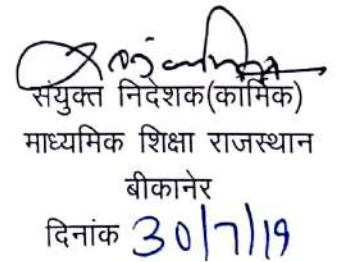 संयुक्त निदेशक(कार्मिक)
माध्यमिक शिक्षा राजस्थान
बीकानेर
दिनांक 30/7/19